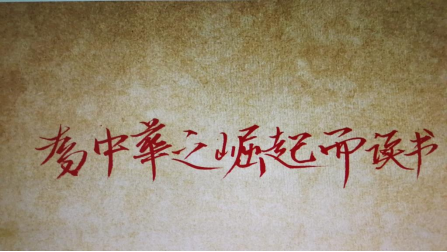 為中華之崛起而读书